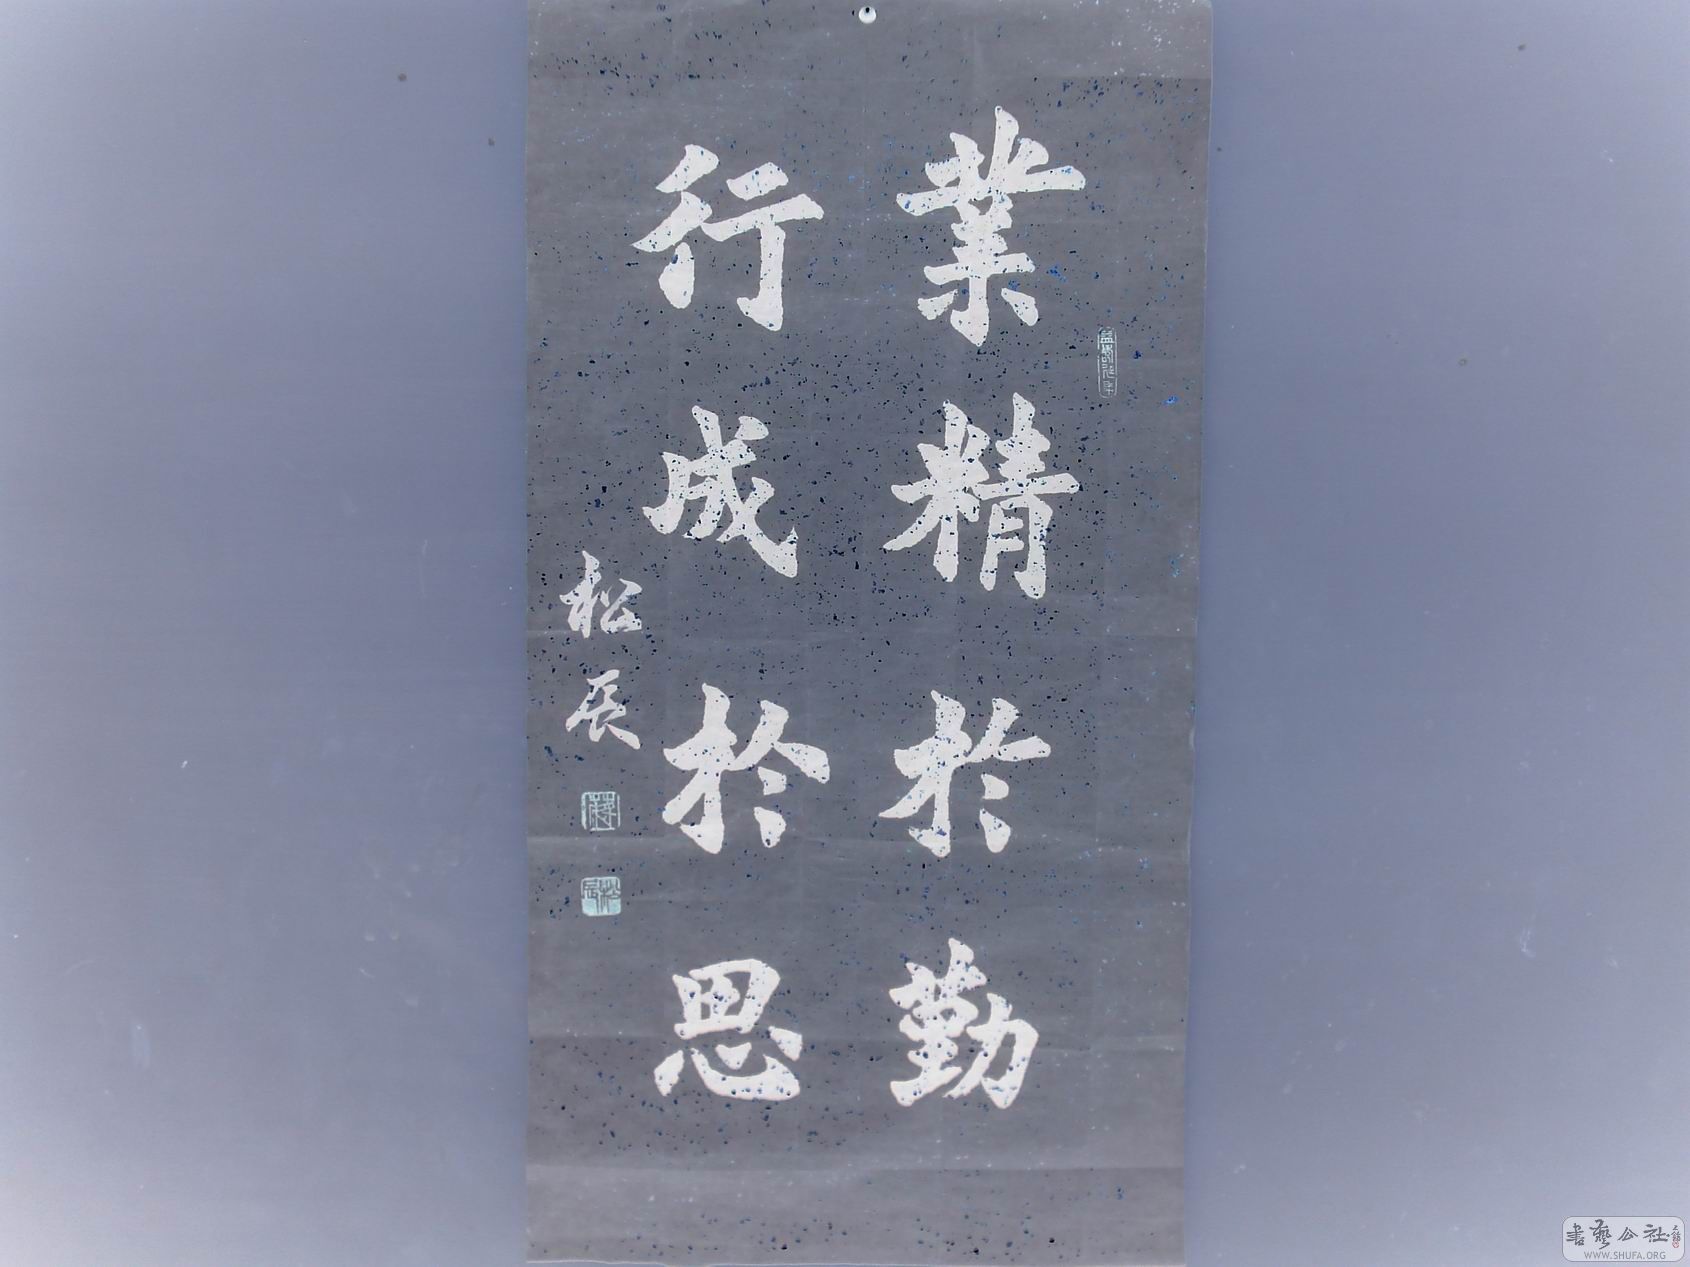 業精於勤
行成於思
松辰
書藝公社
WWW.SHUFA.ORG